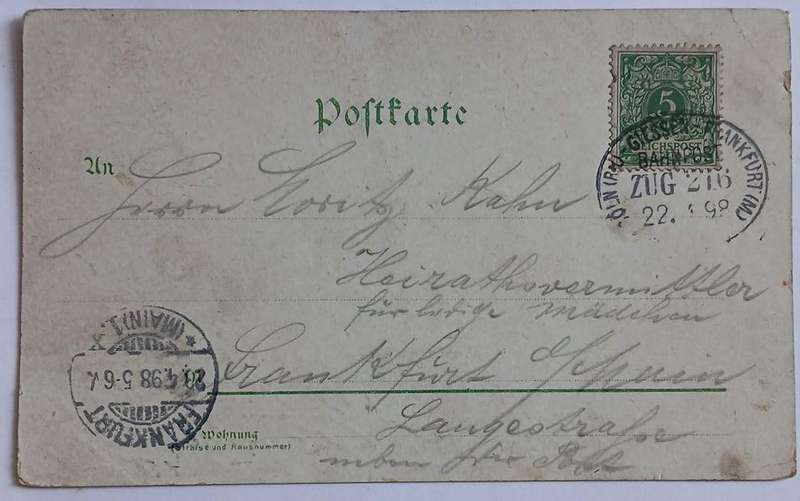 Postkarte
5
REICHSPOST
CÖLN (RH)-GIESSEN-FRANKFURT (M)
BAHNPOST
ZUG 216
22. 98
An
Herrn Moritz Kahn
Heirathsvermittler
für ledige Mädchen
Frankfurt a/Main
Wohnung
(Straße und Hausnummer)
Langestraße
neben der Post
FRANKFURT
(MAIN) 1.
98 5-6